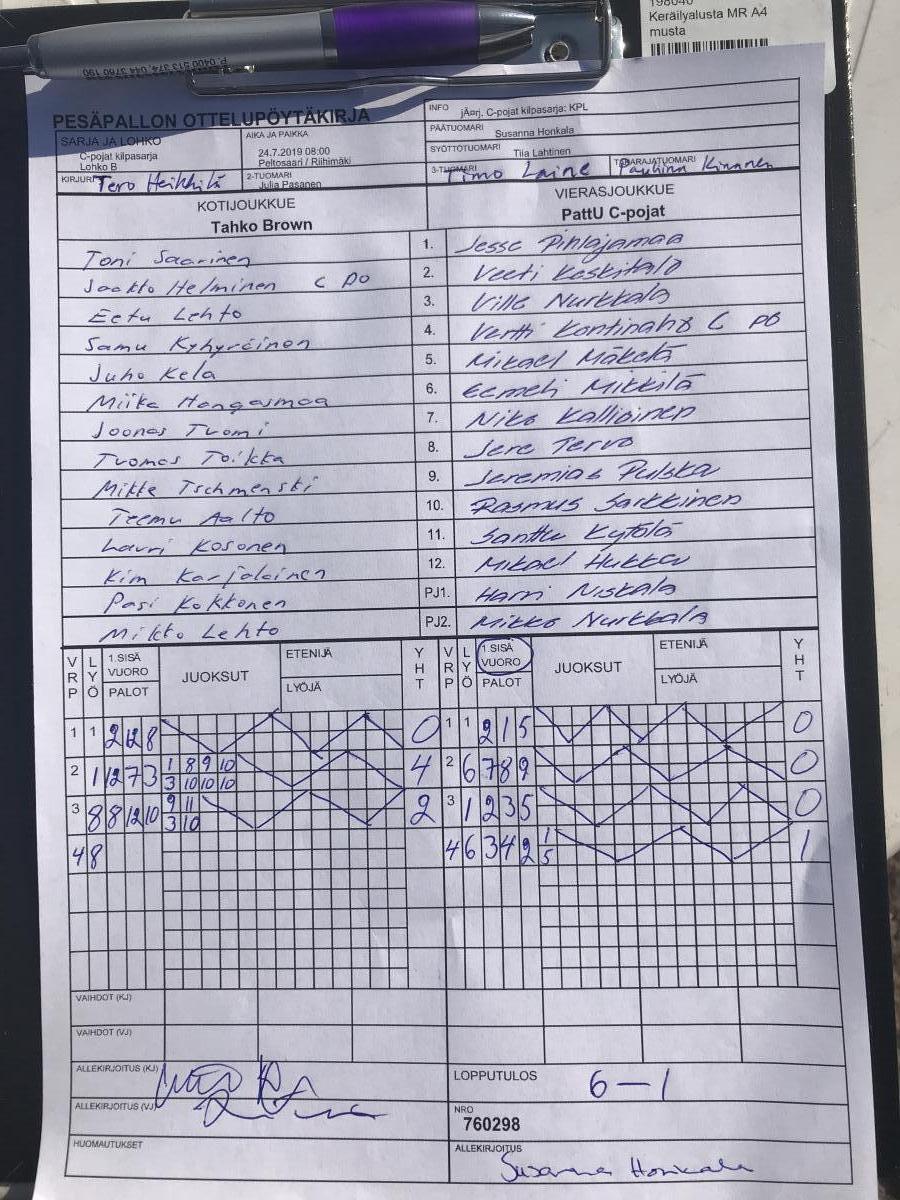 198040
Keräilyalusta MR A4
musta
P. 0400 513 374, 044 3760 190
PESÄPALLON OTTELUPÖYTÄKIRJA
SARJA JA LOHKO
C-pojat kilpasarja
Lohko B
AIKA JA PAIKKA
24.7.2019 08:00
Peltosaari / Riihimäki
INFO jÃ¤rj. C-pojat kilpasarja: KPL
PÄÄTUOMARI Susanna Honkala
SYÖTTÖTUOMARI Tiia Lahtinen
KIRJURI Tero Heikkilä
2-TUOMARI Julia Pasanen
3-TUOMARI Timo Laine
TAKARAJATUOMARI Pauliina Kinnanen
KOTIJOUKKUE
Tahko Brown
VIERASJOUKKUE
PattU C-pojat
Toni Saarinen 1. Jesse Pihlajamaa
Jaakko Helminen C po 2. Veeti Keskitalo
Eetu Lehto 3. Ville Nurkkala
Samu Kyhyräinen 4. Vertti Kontinaho C po
Juho Kela 5. Mikael Mäkelä
Miika Hongasmaa 6. Eemeli Mikkilä
Joonas Tuomi 7. Niko Kallioinen
Tuomas Toikka 8. Jere Tervo
Mikke Tschmenski 9. Jeremias Pulska
Teemu Aalto 10. Rasmus Sarkkinen
Lauri Kosonen 11. Santtu Kytölä
Kim Karjalainen 12. Mikael Hukka
Pasi Kokkonen PJ1. Harri Niskala
Mikko Lehto PJ2. Mikko Nurkkala
VRP LYÖ 1.SISÄ VUORO PALOT JUOKSUT ETENIJÄ LYÖJÄ YHT VRP LYÖ 1.SISÄ VUORO PALOT JUOKSUT ETENIJÄ LYÖJÄ YHT
1 1 2 8 0 1 1 2 1 5 0
2 1 12 7 3 1 8 9 10 4 2 6 7 8 9 0
3 10 10 10
3 8 8 12 10 9 11 2 3 1 2 3 5 0
3 10
4 8 4 6 3 4 2 1 1
5
VAIHDOT (KJ)
VAIHDOT (VJ)
ALLEKIRJOITUS (KJ)
LOPPUTULOS 6 – 1
ALLEKIRJOITUS (VJ)
NRO
760298
HUOMAUTUKSET
ALLEKIRJOITUS
Susanna Honkala